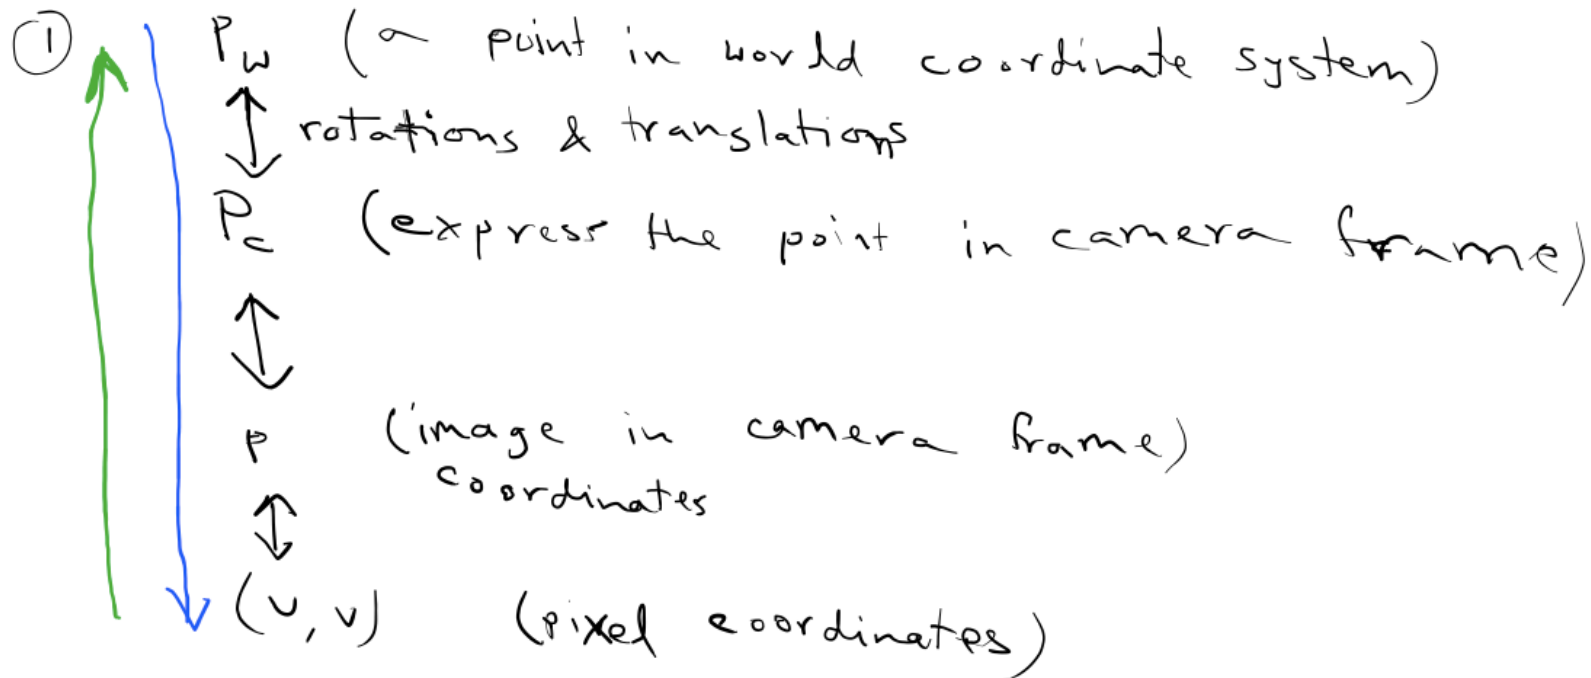 ① P_w (a point in world coordinate system)
rotations & translations
P_c (express the point in camera frame)
P (image in camera frame)
coordinates
(u, v) (pixel coordinates)